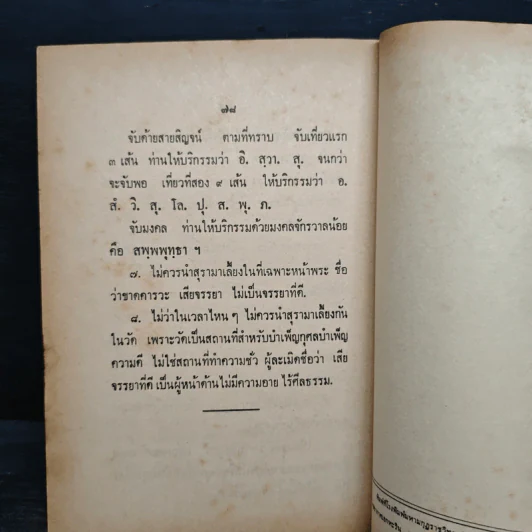 ๗๘
จับด้ายสายสิญจน์ ตามที่ทราบ จับเที่ยวแรก
๓ เส้น ท่านให้บริกรรมว่า อิ. สฺวา. สุ. จนกว่า
จะจับพอ เที่ยวที่สอง ๙ เส้น ให้บริกรรมว่า อ.
สํ. วิ. สุ. โล. ปุ. ส. พุ. ภ.
จับมงคล ท่านให้บริกรรมด้วยมงคลจักรวาลน้อย
คือ สพฺพพุทฺธา ฯ
๗. ไม่ควรนำสุรามาเลี้ยงในที่เฉพาะหน้าพระ ชื่อ
ว่าขาดคารวะ เสียจรรยา ไม่เป็นจรรยาที่ดี.
๘. ไม่ว่าในเวลาไหน ๆ ไม่ควรนำสุรามาเลี้ยงกัน
ในวัด เพราะวัดเป็นสถานที่สำหรับบำเพ็ญกุศลบำเพ็ญ
ความดี ไม่ใช่สถานที่ทำความชั่ว ผู้ละเมิดชื่อว่า เสีย
จรรยาที่ดี เป็นผู้หน้าด้านไม่มีความอาย ไร้ศีลธรรม.